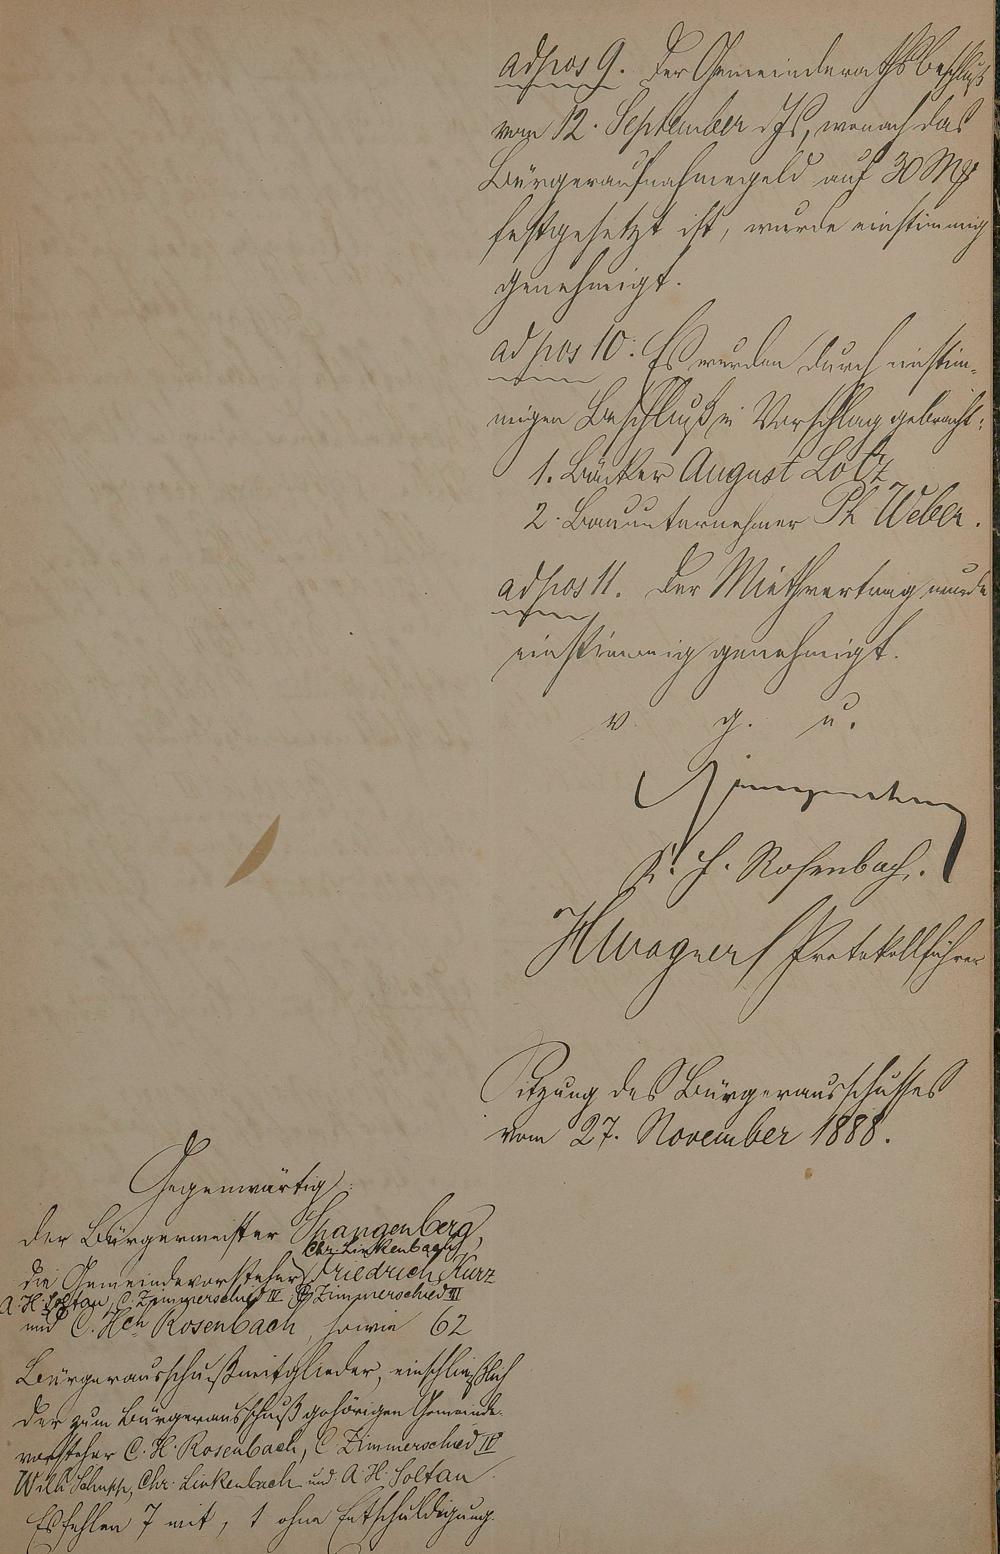 ad pos 9. Der Gemeinderathsbeschluß
vom 12. September d Js, wonach das
Bürgeraufnahmegeld auf 30 Mk
festgesetzt ist, wurde einstimmig
genehmigt.
ad pos 10. Es wurden durch einstim-
migen Beschluß in Vorschlag gebracht:
1. Bäcker August Lotz
2. Bauunternehmer Ph Weber.
ad pos 11. Der Miethvertrag wurde
einstimmig genehmigt.
v. g. u.
Spangenberg
C. H. Rosenbach.
HWagner Protokollführer
Sitzung des Bürgerausschusses
vom 27. November 1888.
Gegenwärtig:
der Bürgermeister Spangenberg,
Chr. Linkenbach
die Gemeindevorsteher Friedrich Kurz
A. H. Soltau, C. Zimmerschied IV. Zimmerschied III
und C. Hch Rosenbach, sowie 62
Bürgerausschußmitglieder, einschließlich
der zum Bürgerausschuß gehörigen Gemeinde-
vorsteher C. H. Rosenbach, C Zimmerschied IV
Wilh Schupp, Chr. Linkenbach und A H. Soltau.
Es fehlen 7 mit, 1 ohne Entschuldigung.